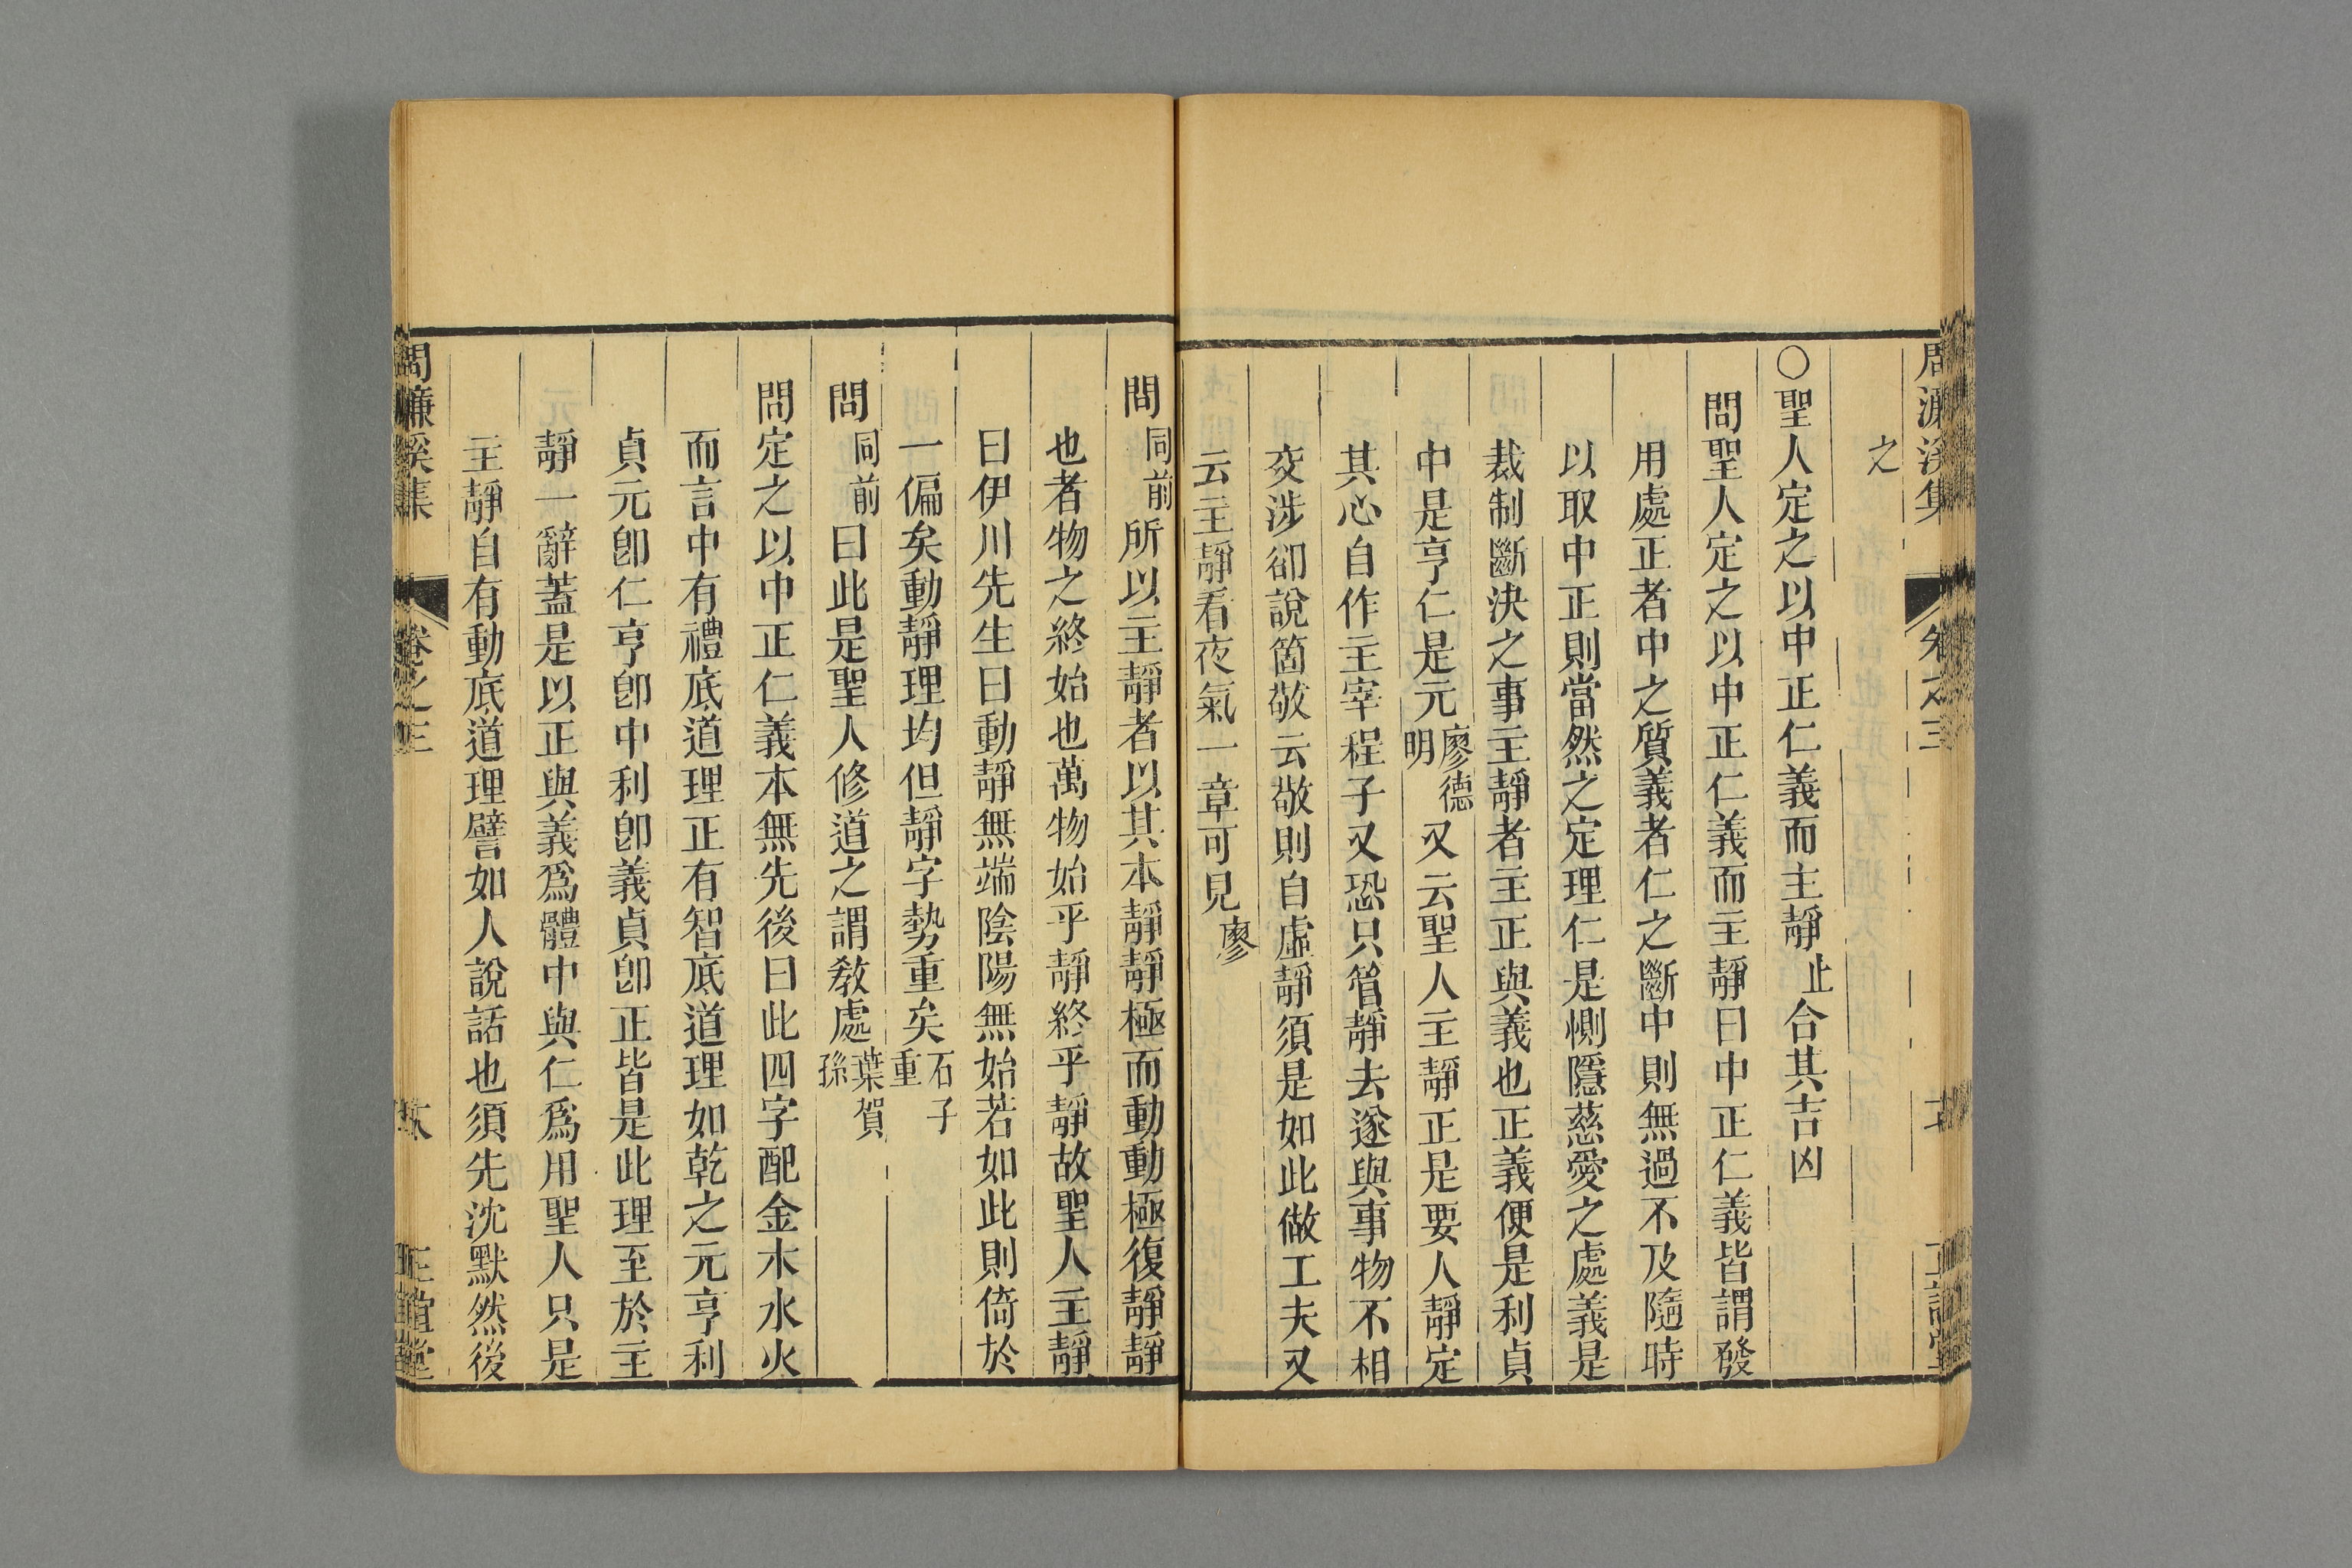 周濂溪集
卷之三
之
○聖人定之以中正仁義而主靜止合其吉凶
問聖人定之以中正仁義而主靜曰中正仁義皆謂發
用處正者中之質義者仁之斷中則無過不及隨時
以取中正則當然之定理仁是惻隱慈愛之處義是
裁制斷決之事主靜者主正與義也正義便是利貞
中是亨仁是元廖德明又云聖人主靜正是要人靜定
其心自作主宰程子又恐只管靜去遂與事物不相
交涉卻說箇敬云敬則自虛靜須是如此做工夫又
云主靜看夜氣一章可見廖
問同前所以主靜者以其本靜靜極而動動極復靜靜
也者物之終始也萬物始乎靜終乎靜故聖人主靜
曰伊川先生曰動靜無端陰陽無始若如此則倚於
一偏矣動靜理均但靜字勢重矣石子重
問同前曰此是聖人修道之謂教處葉賀孫
問定之以中正仁義本無先後曰此四字配金木水火
而言中有禮底道理正有智底道理如乾之元亨利
貞元卽仁亨卽中利卽義貞卽正皆是此理至於主
靜一辭蓋是以正與義爲體中與仁爲用聖人只是
主靜自有動底道理譬如人說話也須先沈默然後
周濂溪集
卷之三
正誼堂